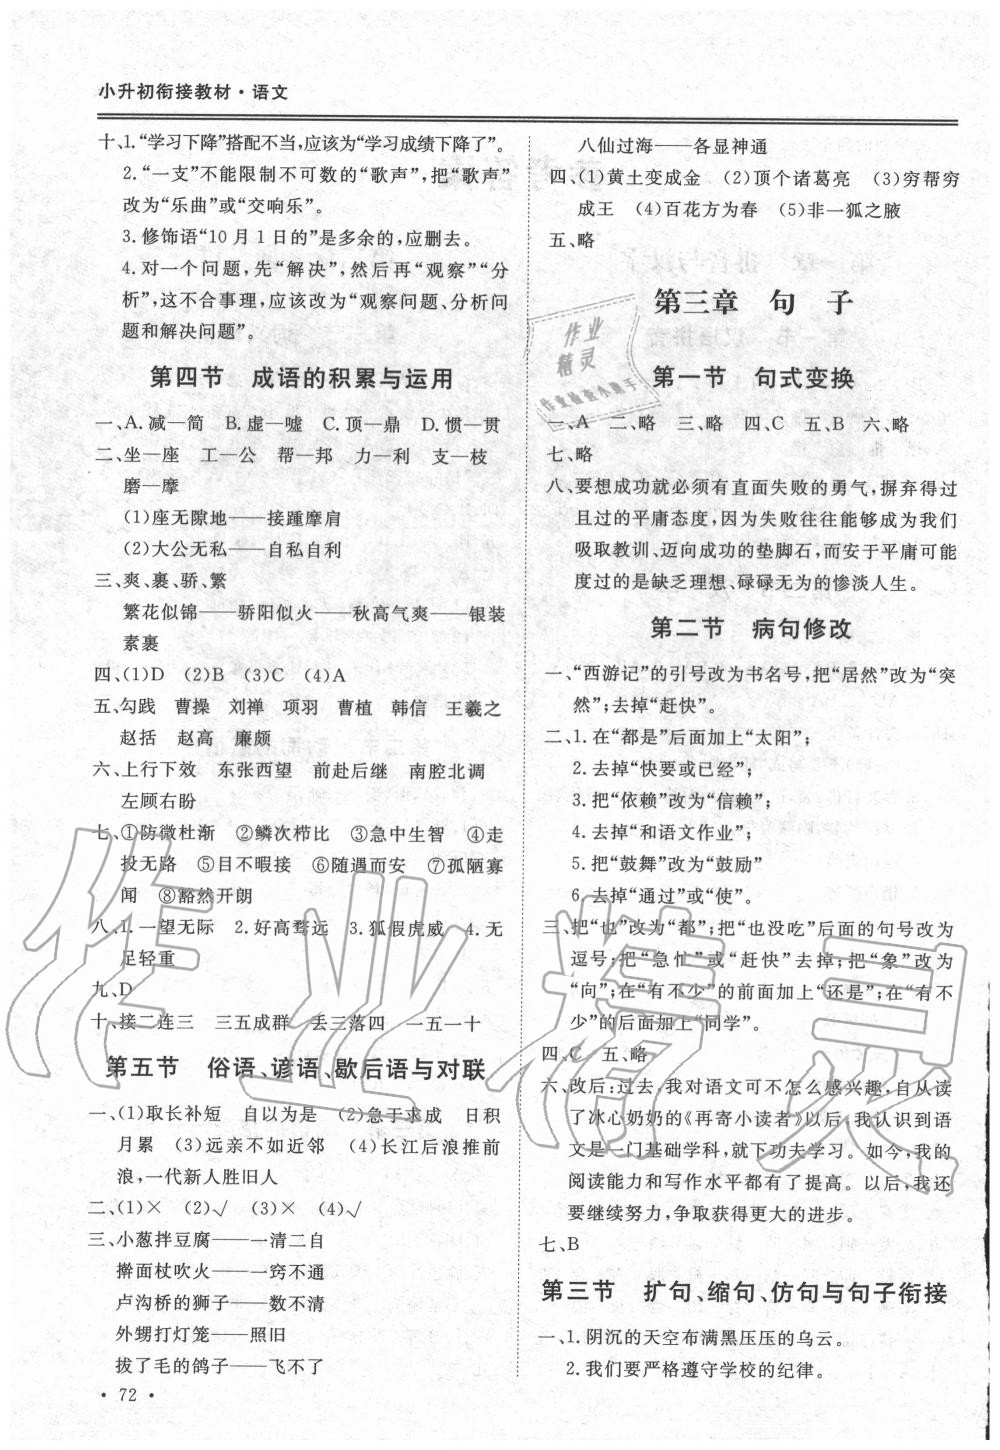 小升初衔接教材·语文
十、1.“学习下降”搭配不当,应该为“学习成绩下降了”。
2.“一支”不能限制不可数的“歌声”,把“歌声”
改为“乐曲”或“交响乐”。
3.修饰语“10月1日的”是多余的,应删去。
4.对一个问题,先“解决”,然后再“观察”“分
析”,这不合事理,应该改为“观察问题、分析问
题和解决问题”。
第四节 成语的积累与运用
一、A.减—简 B.虚—嘘 C.顶—鼎 D.惯—贯
二、坐—座 工—公 帮—邦 力—利 支—枝
磨—摩
(1)座无隙地——接踵摩肩
(2)大公无私——自私自利
三、爽、裹、骄、繁
繁花似锦——骄阳似火——秋高气爽——银装
素裹
四、(1)D (2)B (3)C (4)A
五、勾践 曹操 刘禅 项羽 曹植 韩信 王羲之
赵括 赵高 廉颇
六、上行下效 东张西望 前赴后继 南腔北调
左顾右盼
七、①防微杜渐 ②鳞次栉比 ③急中生智 ④走
投无路 ⑤目不暇接 ⑥随遇而安 ⑦孤陋寡
闻 ⑧豁然开朗
八、1.一望无际 2.好高骛远 3.狐假虎威 4.无
足轻重
九、D
十、接二连三 三五成群 丢三落四 一五一十
第五节 俗语、谚语、歇后语与对联
一、(1)取长补短 自以为是 (2)急于求成 日积
月累 (3)远亲不如近邻 (4)长江后浪推前
浪,一代新人胜旧人
二、(1)× (2)√ (3)× (4)√
三、小葱拌豆腐——一清二白
擀面杖吹火——一窍不通
卢沟桥的狮子——数不清
外甥打灯笼——照旧
拔了毛的鸽子——飞不了
·72·
八仙过海——各显神通
四、(1)黄土变成金 (2)顶个诸葛亮 (3)穷帮穷
成王 (4)百花方为春 (5)非一狐之腋
五、略
第三章 句 子
第一节 句式变换
一、A 二、略 三、略 四、C 五、B 六、略
七、略
八、要想成功就必须有直面失败的勇气,摒弃得过
且过的平庸态度,因为失败往往能够成为我们
吸取教训、迈向成功的垫脚石,而安于平庸可能
度过的是缺乏理想、碌碌无为的惨淡人生。
第二节 病句修改
一、“西游记”的引号改为书名号,把“居然”改为“突
然”;去掉“赶快”。
二、1.在“都是”后面加上“太阳”;
2.去掉“快要或已经”;
3.把“依赖”改为“信赖”;
4.去掉“和语文作业”;
5.把“鼓舞”改为“鼓励”
6.去掉“通过”或“使”。
三、把“也”改为“都”;把“也没吃”后面的句号改为
逗号;把“急忙”或“赶快”去掉;把“象”改为
“向”;在“有不少”的前面加上“还是”;在“有不
少”的后面加上“同学”。
四、C 五、略
六、改后:过去,我对语文可不怎么感兴趣,自从读
了冰心奶奶的《再寄小读者》以后,我认识到语
文是一门基础学科,就下功夫学习。如今,我的
阅读能力和写作水平都有了提高。以后,我还
要继续努力,争取获得更大的进步。
七、B
第三节 扩句、缩句、仿句与句子衔接
一、1.阴沉的天空布满黑压压的乌云。
2.我们要严格遵守学校的纪律。
作业
精灵
作业检查小助手
作业精灵